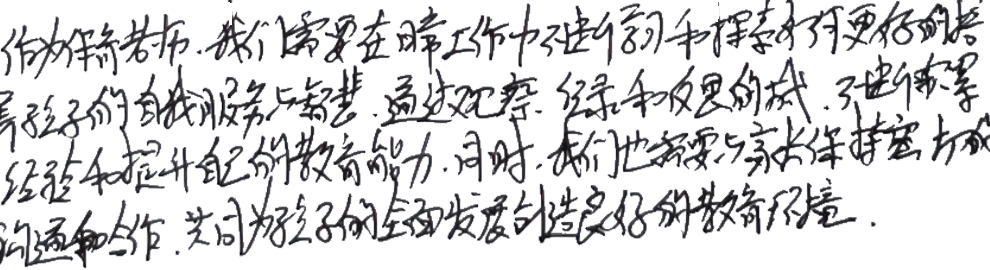 作为保育老师，我们需要在日常工作中不断学习和探索如何更好的培
养孩子的自我服务与智慧，通过观察、纪录和反思的方式，不断积累
经验和提升自己的教育能力，同时，我们也需要与家长保持密切的
沟通和合作，共同为孩子的全面发展创造良好的教育环境．